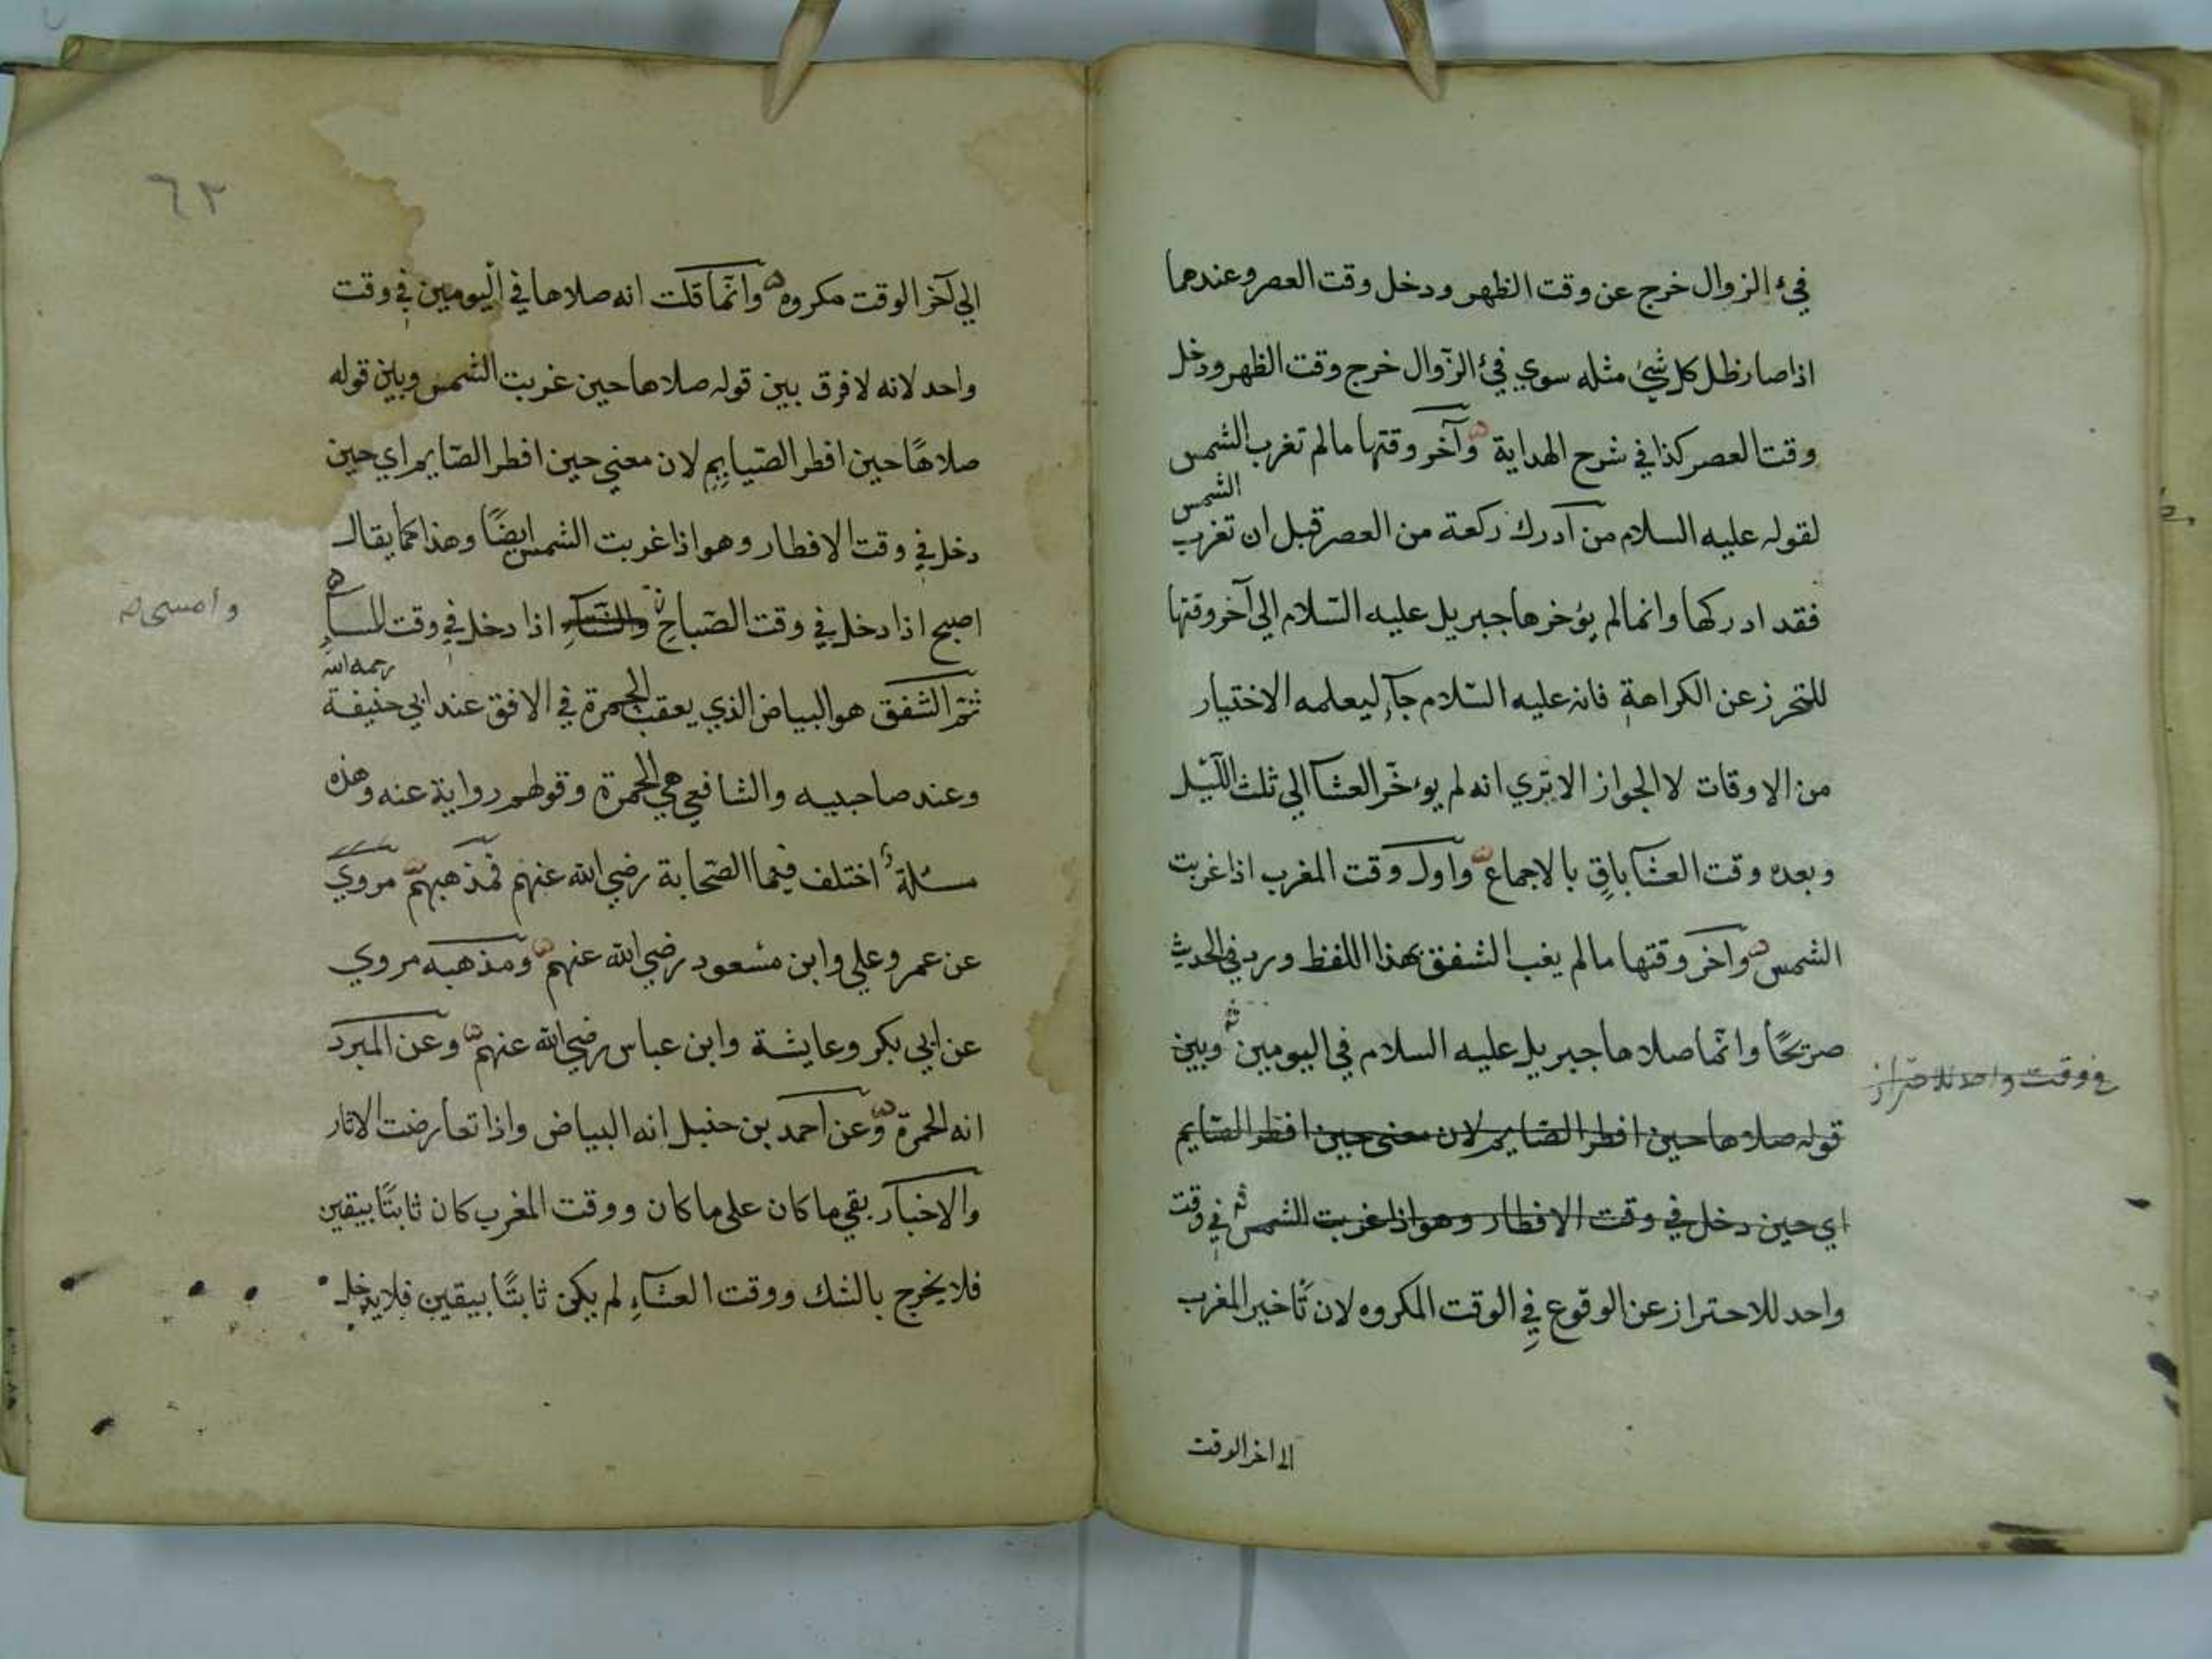 فيء الزوال خرج عن وقت الظهر ودخل وقت العصر وعندهما
اذا صار ظل كل شئ مثله سوي فيء الزوال خرج وقت الظهر ودخل
وقت العصر كذا في شرح الهداية وآخر وقتها مالم تغرب الشمس
الشمس
لقوله عليه السلام من ادرك ركعة من العصر قبل ان تغرب
فقد ادركها وانما لم يؤخرها جبريل عليه السّلام الي آخر وقتها
للتحرز عن الكراهة فانه عليه السّلام جآء ليعلمه الاختيار
من الاوقات لا الجواز الا تري انه لم يوءخّر العشآ الي ثلث اللّيل
وبعده وقت العشآ باقٍ بالاجماع واول وقت المغرب اذا غربت
الشمس وآخر وقتها مالم يغب الشفق بهذا اللفظ ورد في الحديث
صريحًا وانّما صلاها جبريل عليه السلام في اليومين وبين
في وقت واحد للاحتراز
قوله صلاها حين افطر الصّايم لان معنى حين افطر الصّايم
اي حين دخل في وقت الافطار وهو اذا غربت الشمس في وقت
واحد للاحتراز عن الوقوع في الوقت المكروه لان تأخير المغرب
الى اخر الوقت
٦٣
الي آخر الوقت مكروه وانّما قلت انه صلاها في اليومين في وقت
واحد لانه لا فرق بين قوله صلاها حين غربت الشمس وبين قوله
صلاهًا حين افطر الصّيايم لان معني حين افطر الصّايم اي حين
دخل في وقت الافطار وهو اذا غربت الشمس ايضًا وهذا كما يقال
اصبح اذا دخل في وقت الصّباح اذا دخل في وقت المسآء
وأمسى
رحمه الله
ثمّ الشفق هو البياض الذي يعقب الحمرة في الافق عند ابي حنيفة
وعند صاحبيه والشافعي هي الحمرة وقولهم رواية عنه وهذه
مسئلة اختلف فيها الصّحابة رضي الله عنهم فمذهبهم مروي
عن عمر وعلي وابن مسعود رضي الله عنهم ومذهبه مروي
عن ابي بكر وعايشة وابن عباس رضي الله عنهم وعن المبرد
انه الحمرة وعن احمد بن حنبل انه البياض واذا تعارضت الاثار
والاخبار بقي ما كان على ما كان ووقت المغرب كان ثابتًا بيقين
فلا يخرج بالشك ووقت العشآءِ لم يكن ثابتًا بيقين فلا يدخل